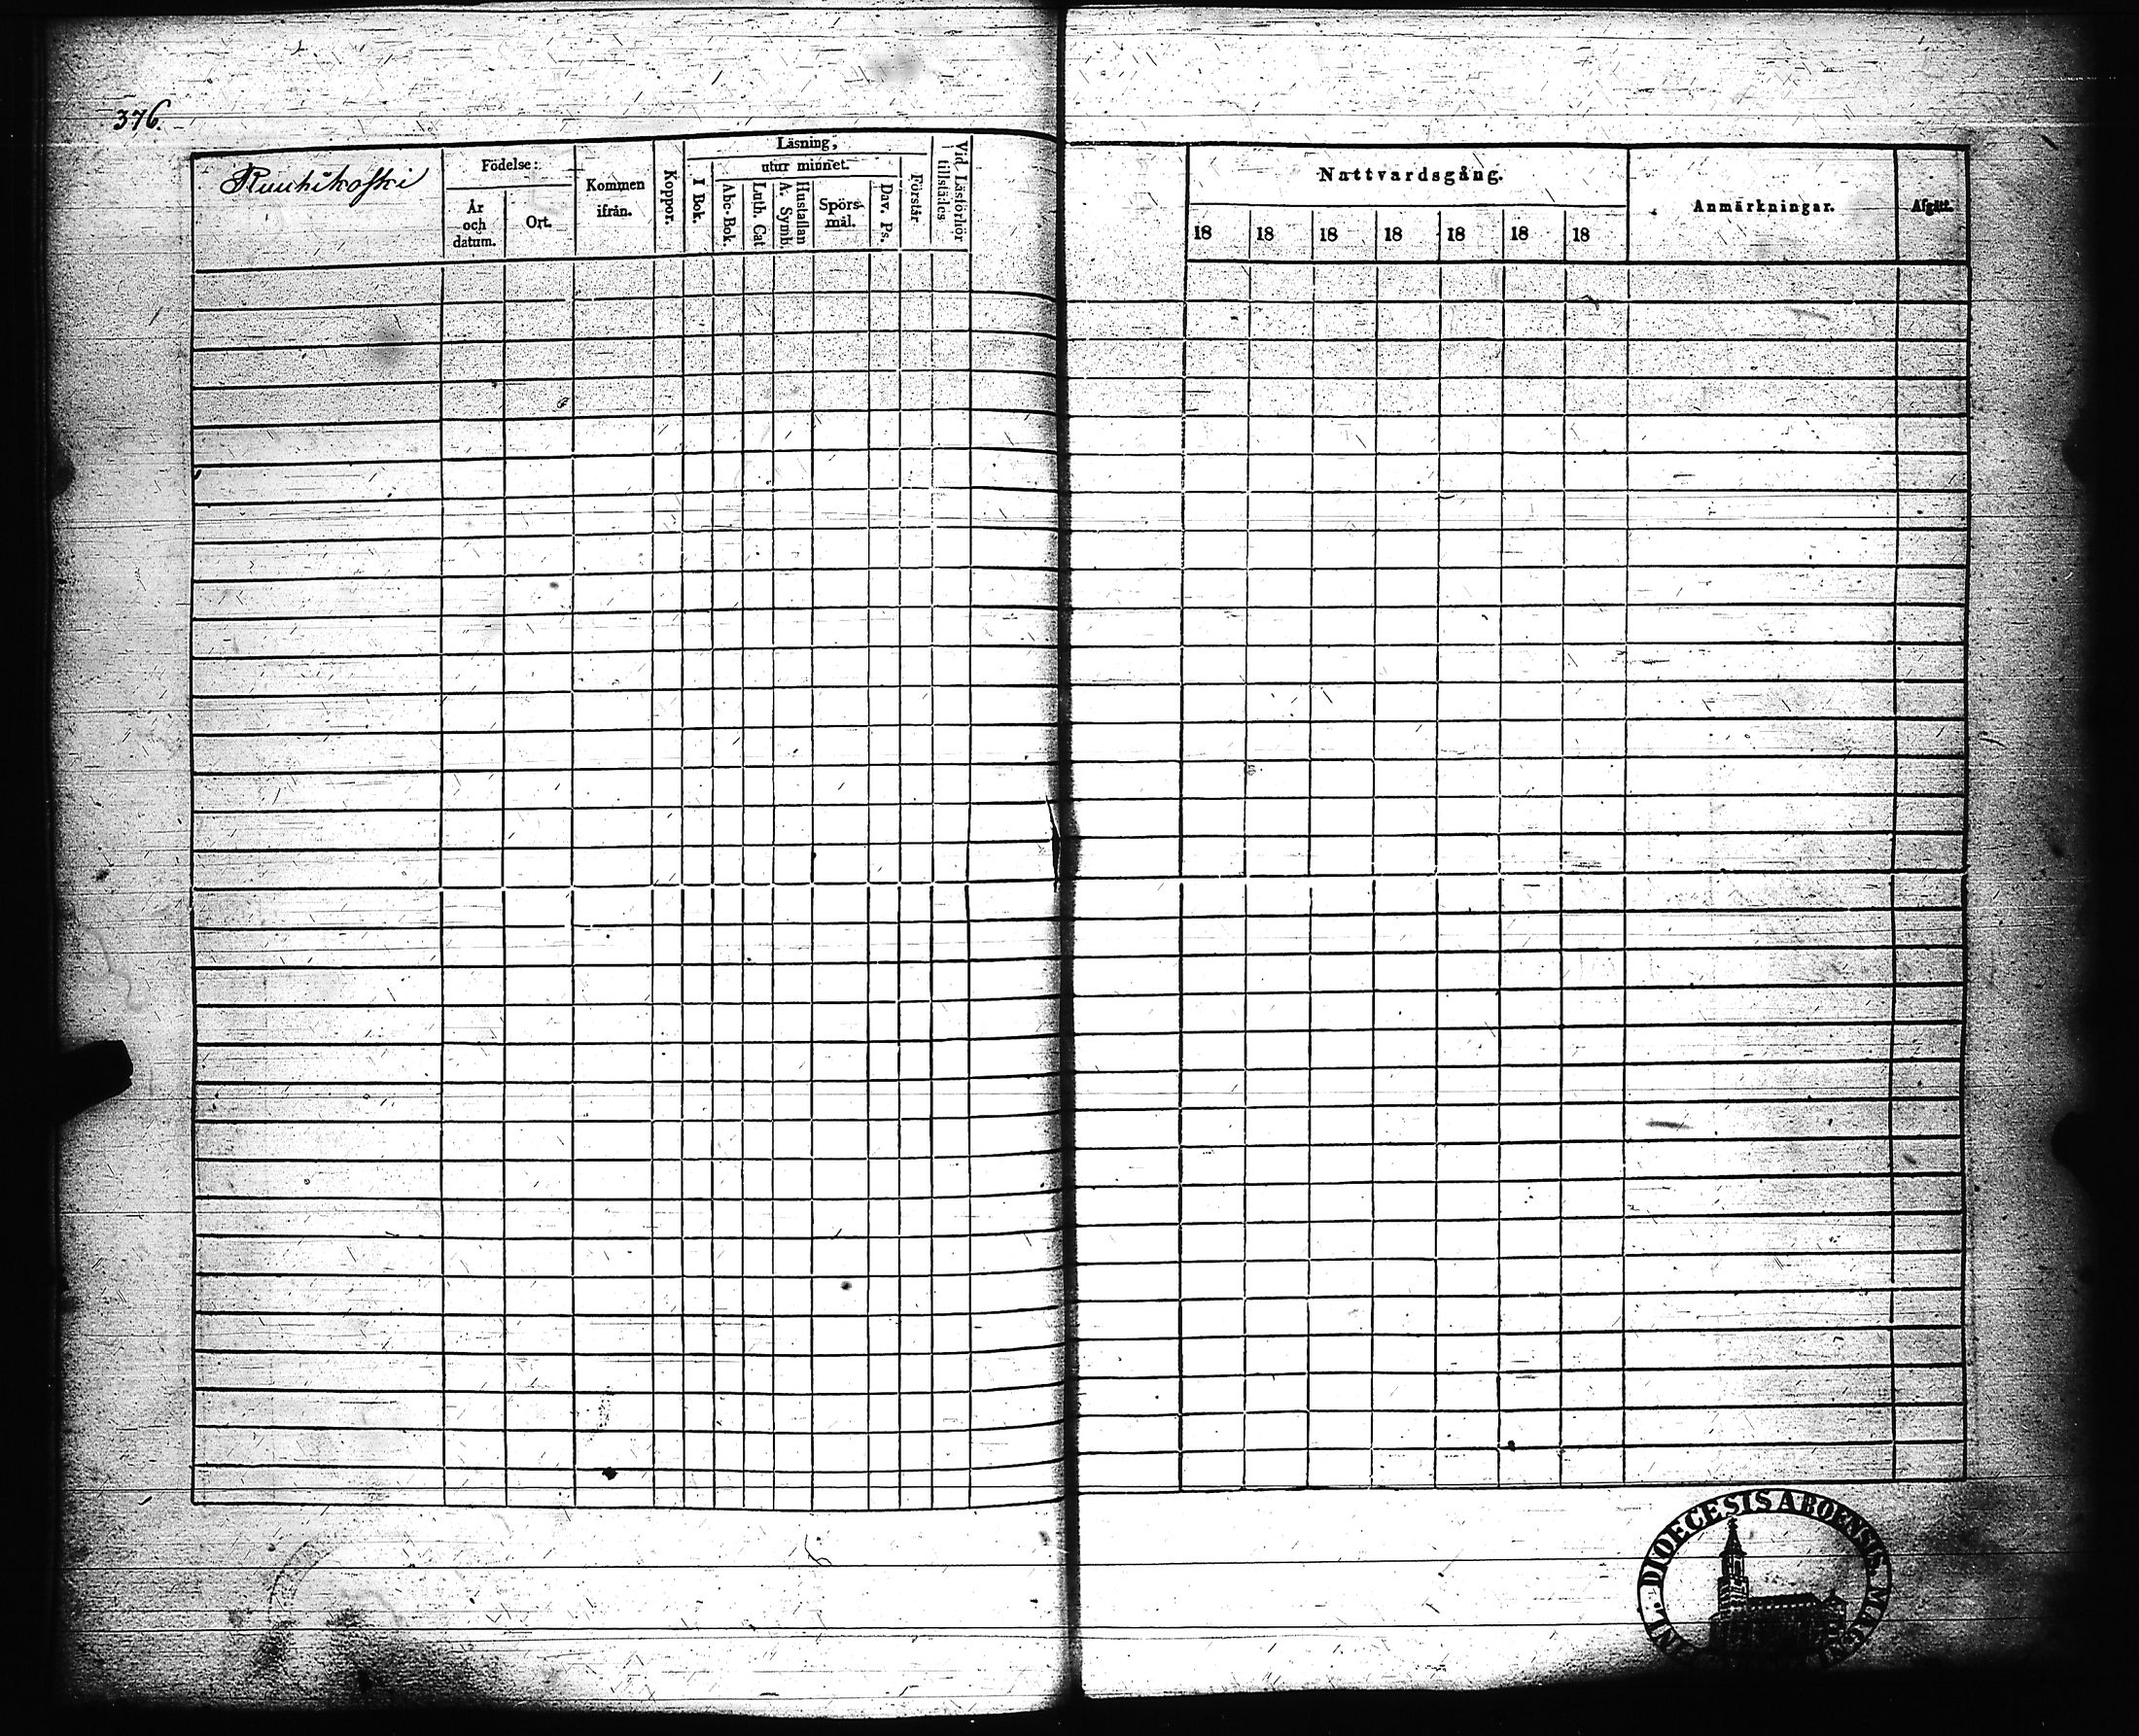 376.
Ruuhikoski
Födelse:
År och datum.
Ort.
Kommen ifrån.
Koppor.
Läsning,
utur minnet.
I Bok.
Abc-Bok.
Luth. Cat.
Hustaflan A. Symb.
Spörs-mål.
Dav. Ps.
Förstår
Vid Läsförhör tillstädes
Nattvardsgång.
18 18 18 18 18 18 18
Anmärkningar.
Afgått.
DIOECESIS ABOENSIS